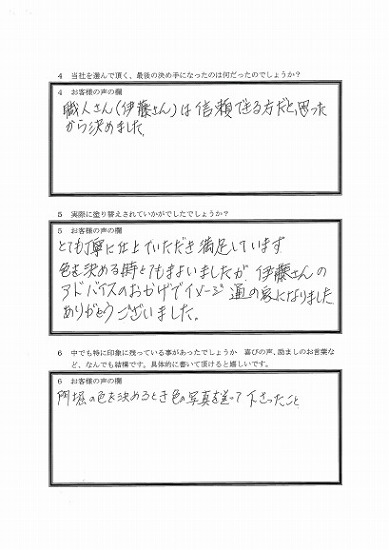 4 当社を選んで頂く、最後の決め手になったのは何だったのでしょうか?
4 お客様の声の欄
職人さん(伊藤さん)は信頼できる方だと思った
から決めました。
5 実際に塗り替えされていかがでしたでしょうか?
5 お客様の声の欄
とても丁寧に仕上ていただき満足しています
色を決める時とてもまよいましたが 伊藤さんの
アドバイスのおかげでイメージ通の家になりました
ありがとうございました。
6 中でも特に印象に残っている事があったでしょうか 喜びの声、励ましのお言葉な
ど、なんでも結構です。具体的に書いて頂けると嬉しいです。
6 お客様の声の欄
の色を決めるとき色の写真を送って下さったこと